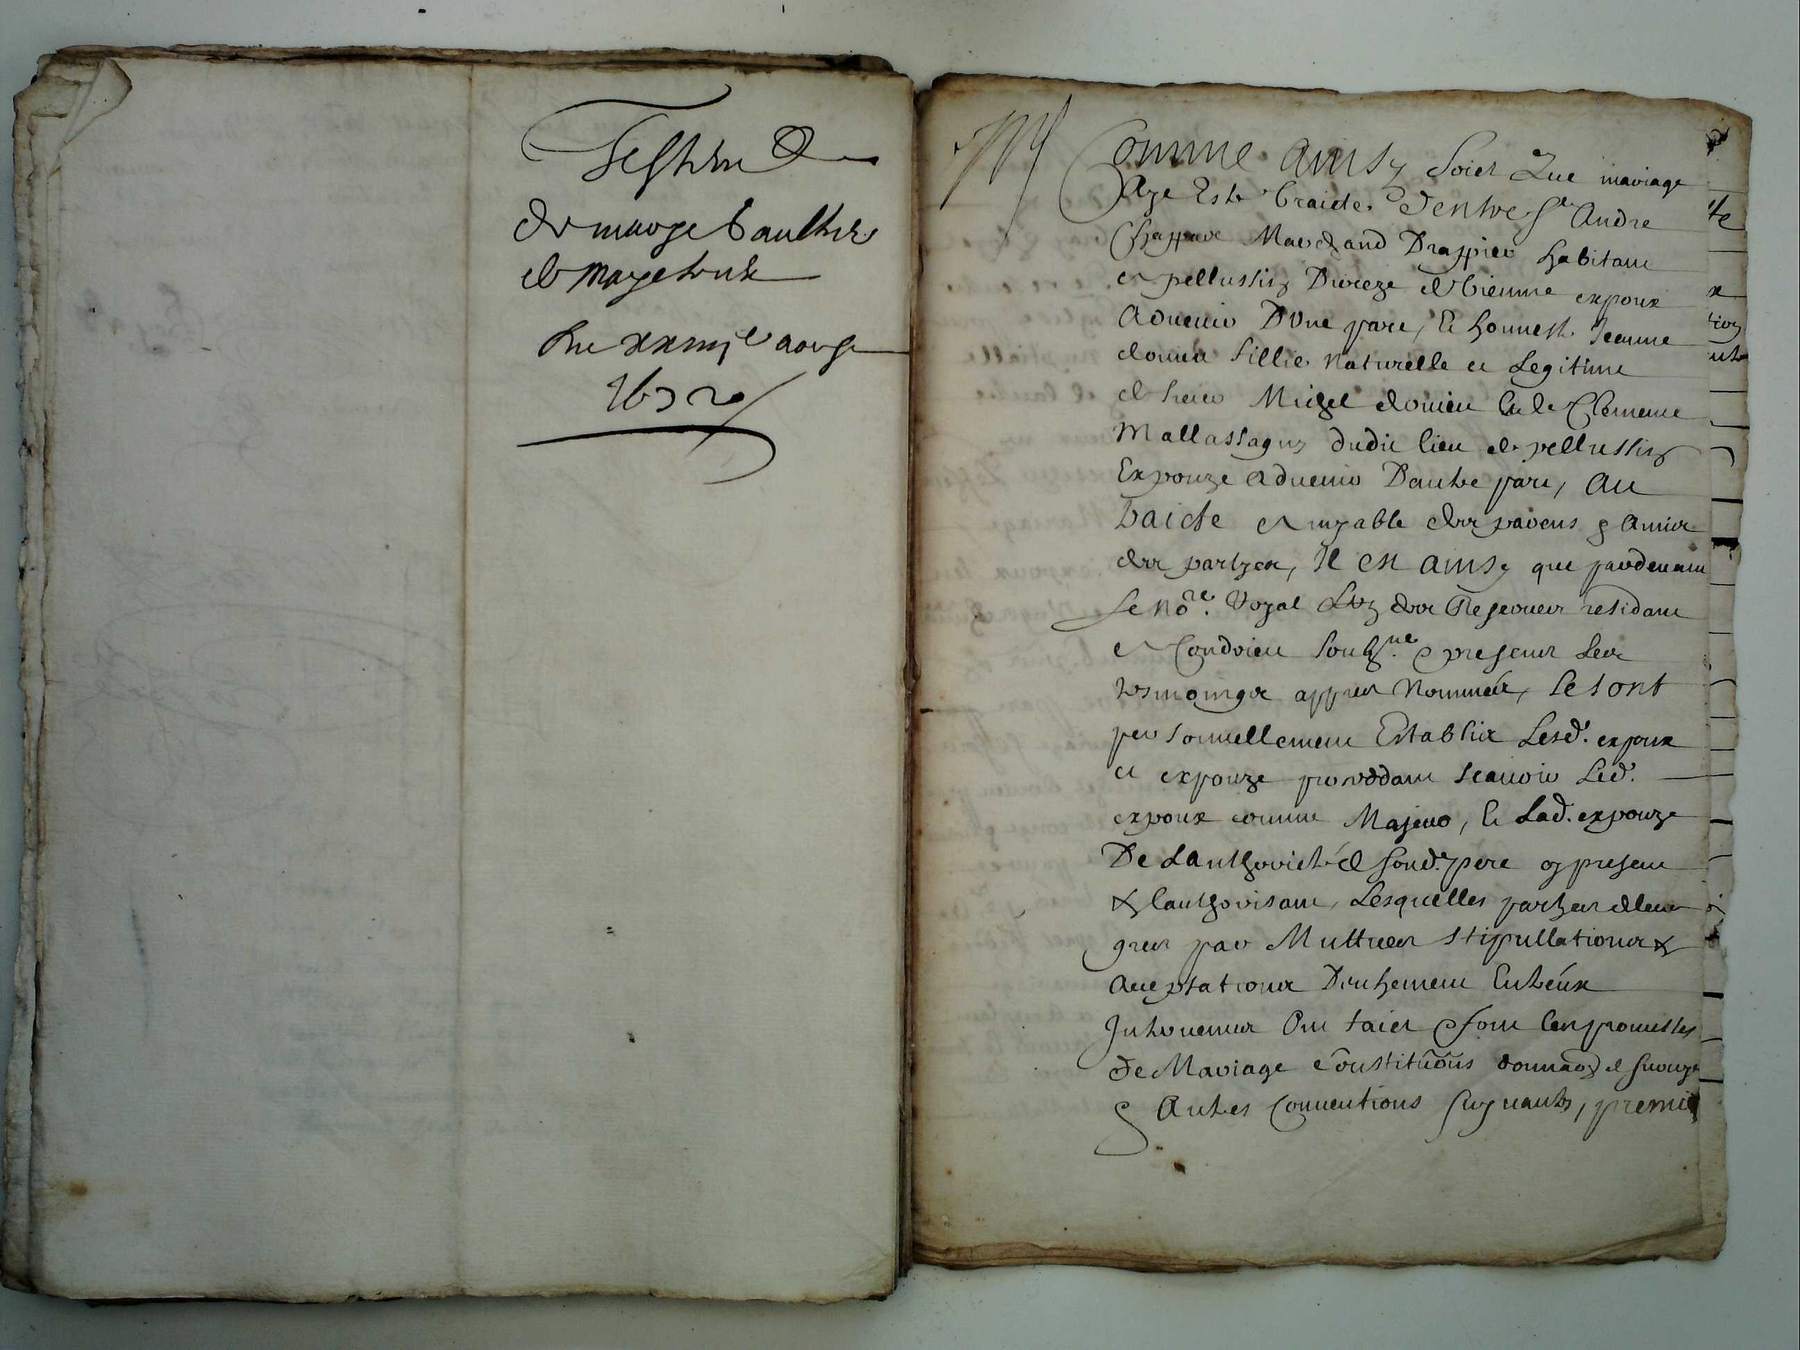 Testam
de marge
de
Du xxiiij aougst
1632
Comme Ainsy soict que mariage
Aye Esté traicté d'entre Sr Andre
Chappuee Marchand Drappier habitant
a pellussin Dioceze de Vienne expoux
Aduenir D'Une part, Et honneste Jeanne
donier fillie naturelle et Legitime
de sieur Michel donier Et de Clemence
Mallassagny dudit lieu de pellussin
Expouze aduenir D'autre part, Au
traicté amyable des parens & Amis
des partyes, Il est ainsy que pardeuant
Le nore Royal Luy des residant
a Condrieu soubzne & presens Les
tesmoingz appres Nommés, se sont
personnellement Establis Lesd. expoux
et expouze proceddant scauoir Led.
expoux comme Majeur, Et Lad. expouze
De Lauthorité de sond. pere cy present
& Lauthorisant, Lesquelles partyes de leur
grez par Muttues stipullations &
Acceptations Entreux
Interuenues Ont faict & font Les promesses
de Mariage constitutions donnaon de suruye
& Autres Conuentions suyuants, premie